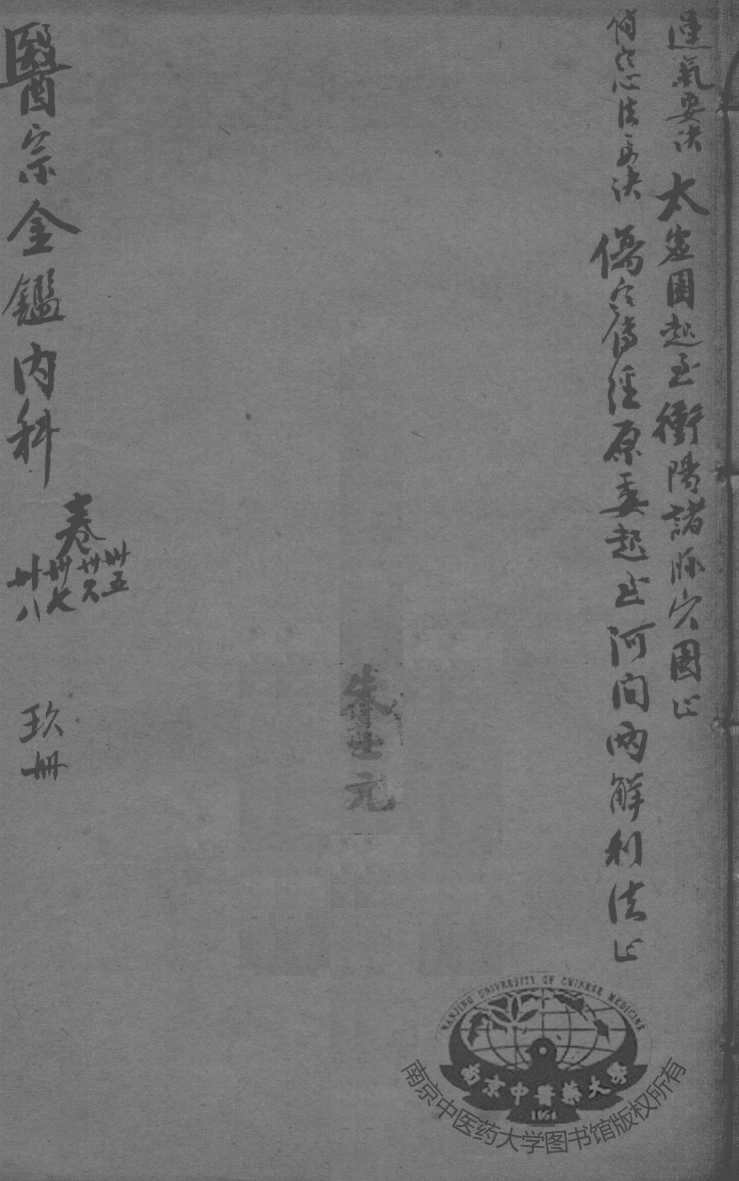 運氣要訣 太虛圖起至衝陽諸脉穴圖止
傷寒心法要訣 傷寒傳經原委起至河间两解利法止
朱世元
醫宗金鑑内科
卷
卅五
卅六
卅七
卅八
玖册
NANJING UNIVERSITY OF CHINESE MEDICINE
南京中醫藥大學
1954
南京中医药大学图书馆版权所有